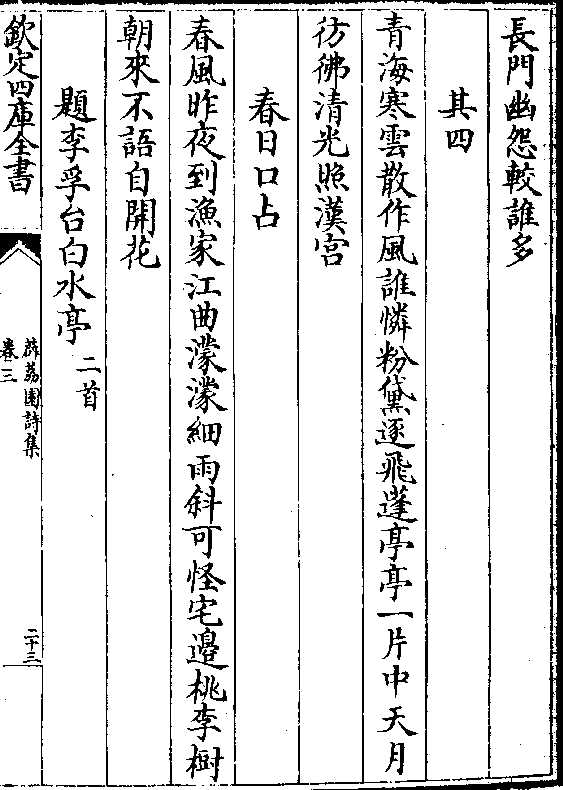 長門幽怨較誰多
其四
青海寒雲散作風誰憐粉黛逐飛蓬亭亭一片中天月
彷彿清光照漢宮
春日口占
春風昨夜到漁家江曲濛濛細雨斜可怪宅邉桃李樹
朝來不語自開花
題李孚台白水亭二首
欽定四庫全書
薜荔園詩集
卷三
二十三